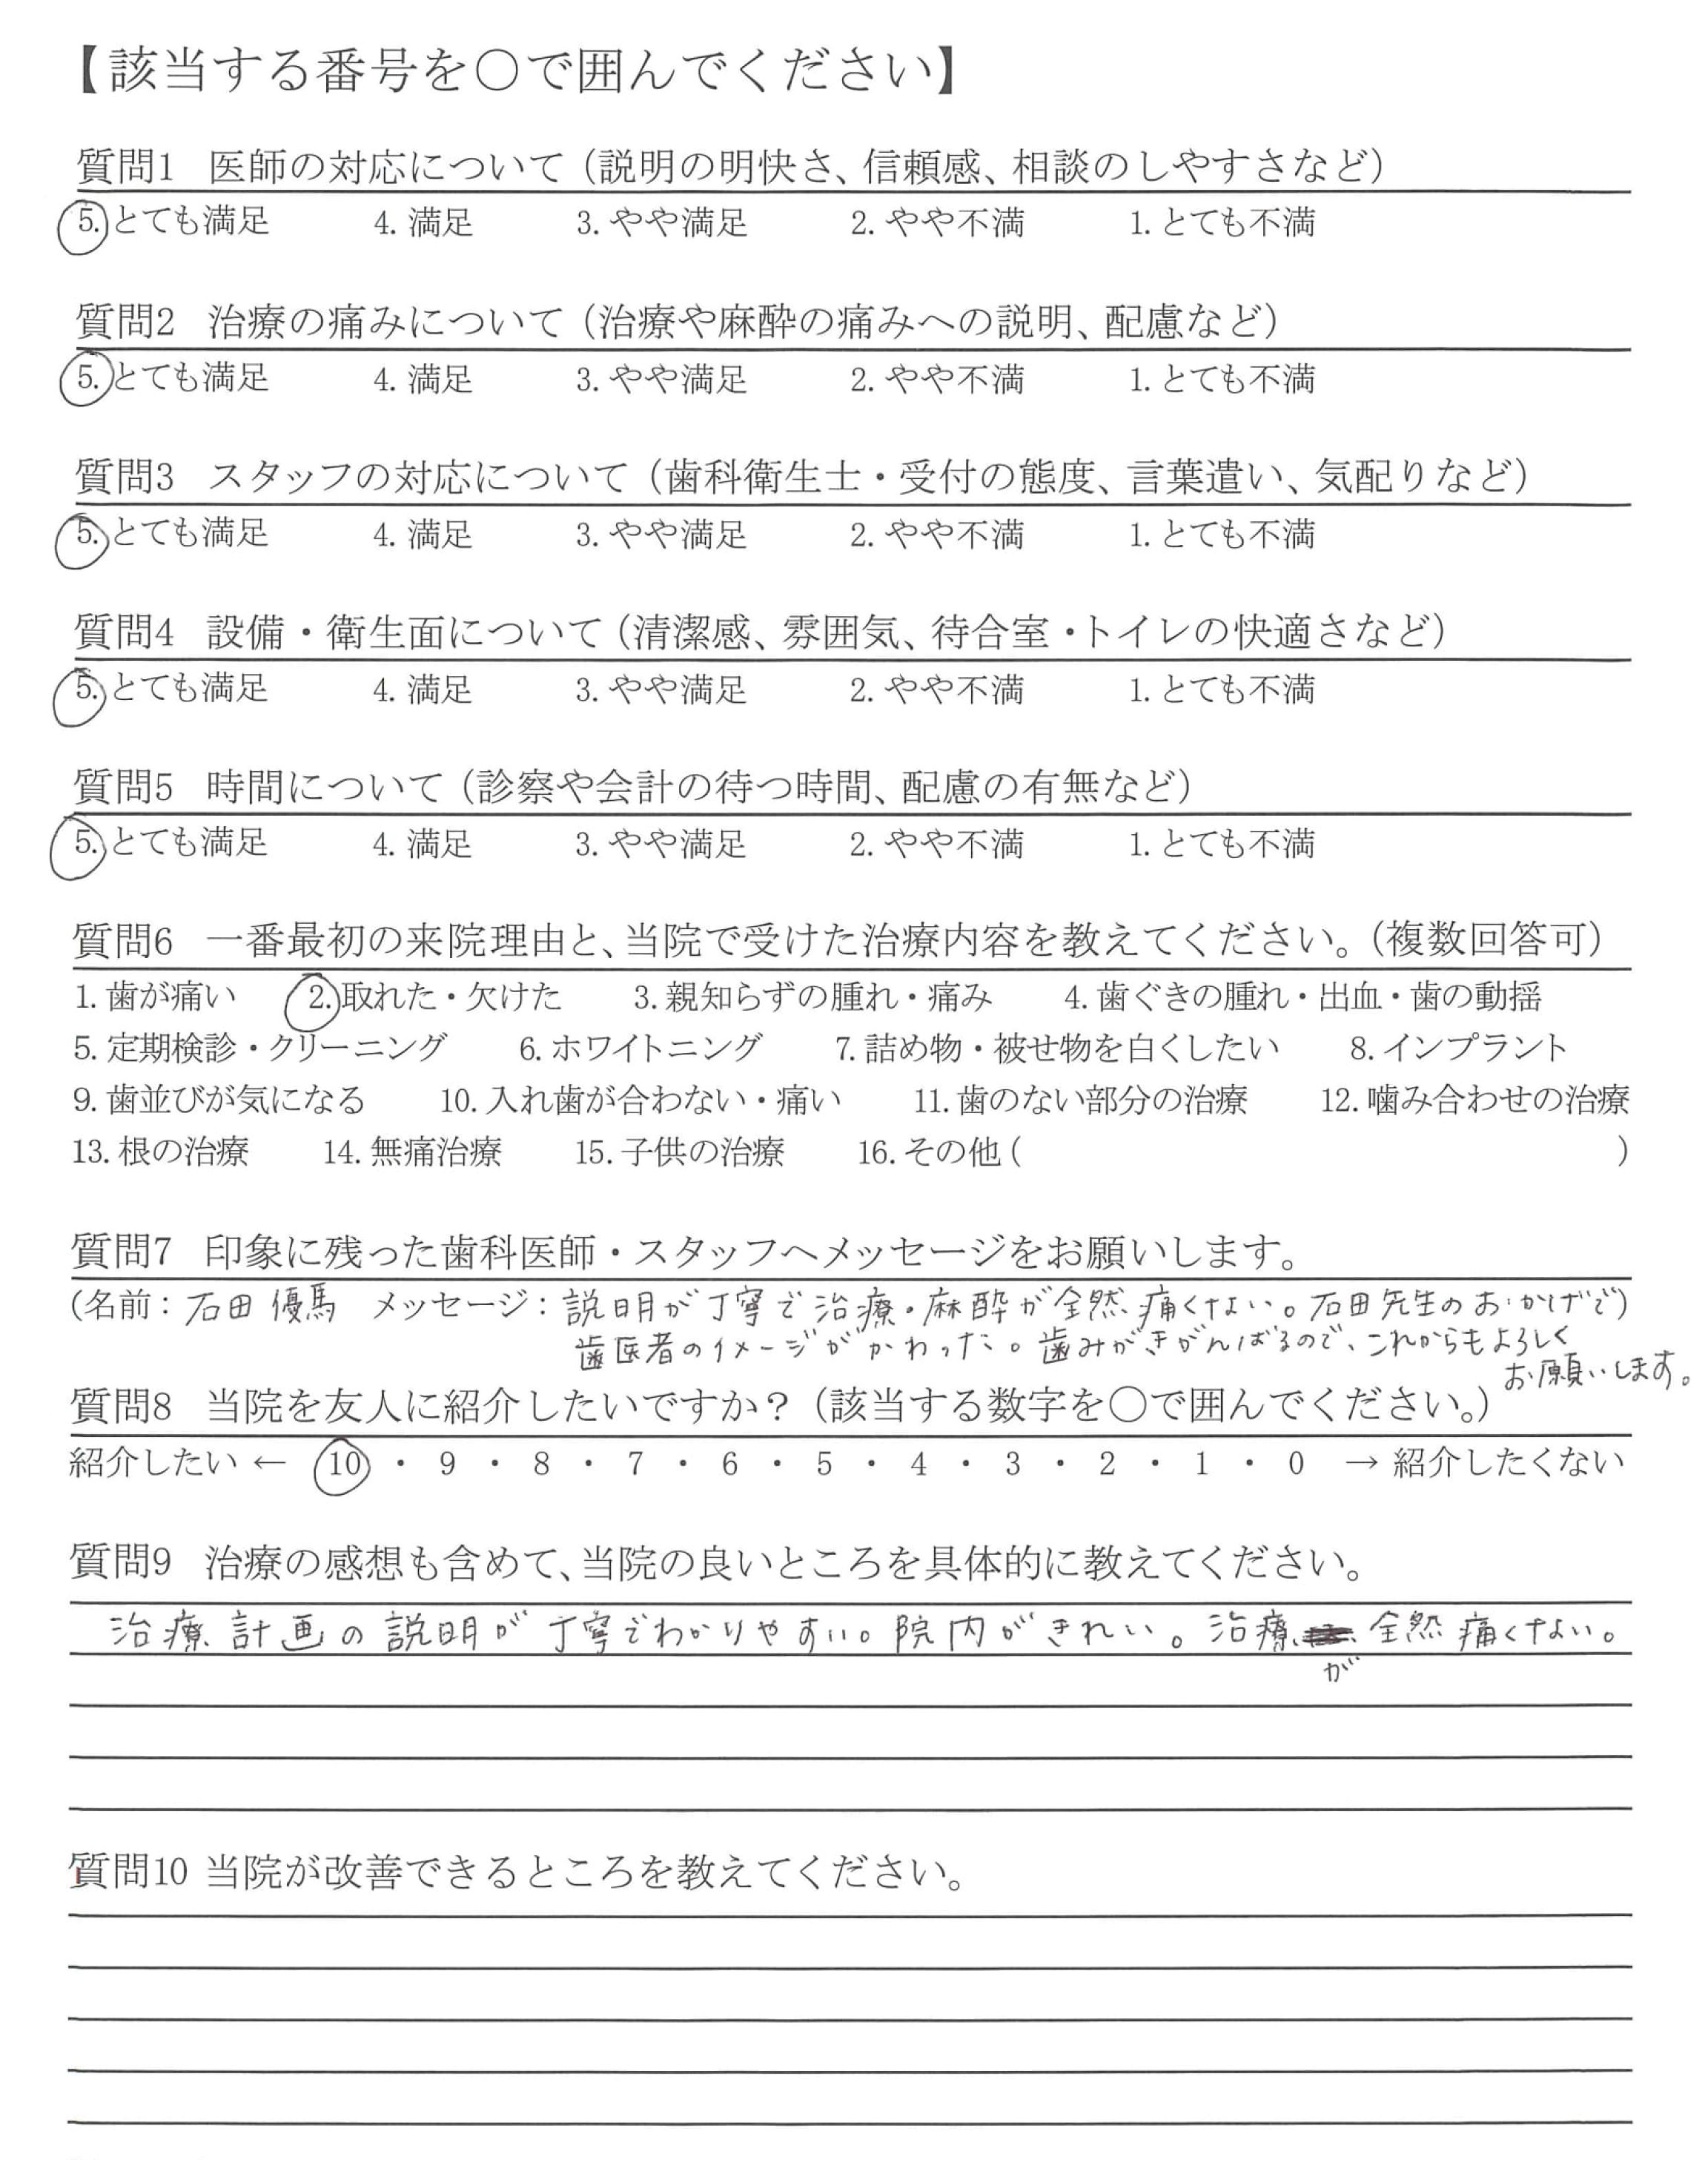 【該当する番号を○で囲んでください】
質問1 医師の対応について（説明の明快さ、信頼感、相談のしやすさなど）
5. とても満足 4. 満足 3. やや満足 2. やや不満 1. とても不満
質問2 治療の痛みについて（治療や麻酔の痛みへの説明、配慮など）
5. とても満足 4. 満足 3. やや満足 2. やや不満 1. とても不満
質問3 スタッフの対応について（歯科衛生士・受付の態度、言葉遣い、気配りなど）
5. とても満足 4. 満足 3. やや満足 2. やや不満 1. とても不満
質問4 設備・衛生面について（清潔感、雰囲気、待合室・トイレの快適さなど）
5. とても満足 4. 満足 3. やや満足 2. やや不満 1. とても不満
質問5 時間について（診察や会計の待つ時間、配慮の有無など）
5. とても満足 4. 満足 3. やや満足 2. やや不満 1. とても不満
質問6 一番最初の来院理由と、当院で受けた治療内容を教えてください。（複数回答可）
1. 歯が痛い 2. 取れた・欠けた 3. 親知らずの腫れ・痛み 4. 歯ぐきの腫れ・出血・歯の動揺
5. 定期検診・クリーニング 6. ホワイトニング 7. 詰め物・被せ物を白くしたい 8. インプラント
9. 歯並びが気になる 10. 入れ歯が合わない・痛い 11. 歯のない部分の治療 12. 噛み合わせの治療
13. 根の治療 14. 無痛治療 15. 子供の治療 16. その他（ ）
質問7 印象に残った歯科医師・スタッフへメッセージをお願いします。
（名前：石田 優馬 メッセージ：説明が丁寧で治療・麻酔が全然痛くない。石田先生のおかげで）
歯医者のイメージがかわった。歯みがきがんばるので、これからもよろしく
お願いします。
質問8 当院を友人に紹介したいですか？（該当する数字を○で囲んでください。）
紹介したい ← 10 ・ 9 ・ 8 ・ 7 ・ 6 ・ 5 ・ 4 ・ 3 ・ 2 ・ 1 ・ 0 → 紹介したくない
質問9 治療の感想も含めて、当院の良いところを具体的に教えてください。
治療計画の説明が丁寧でわかりやすい。院内がきれい。治療が全然痛くない。
質問10 当院が改善できるところを教えてください。